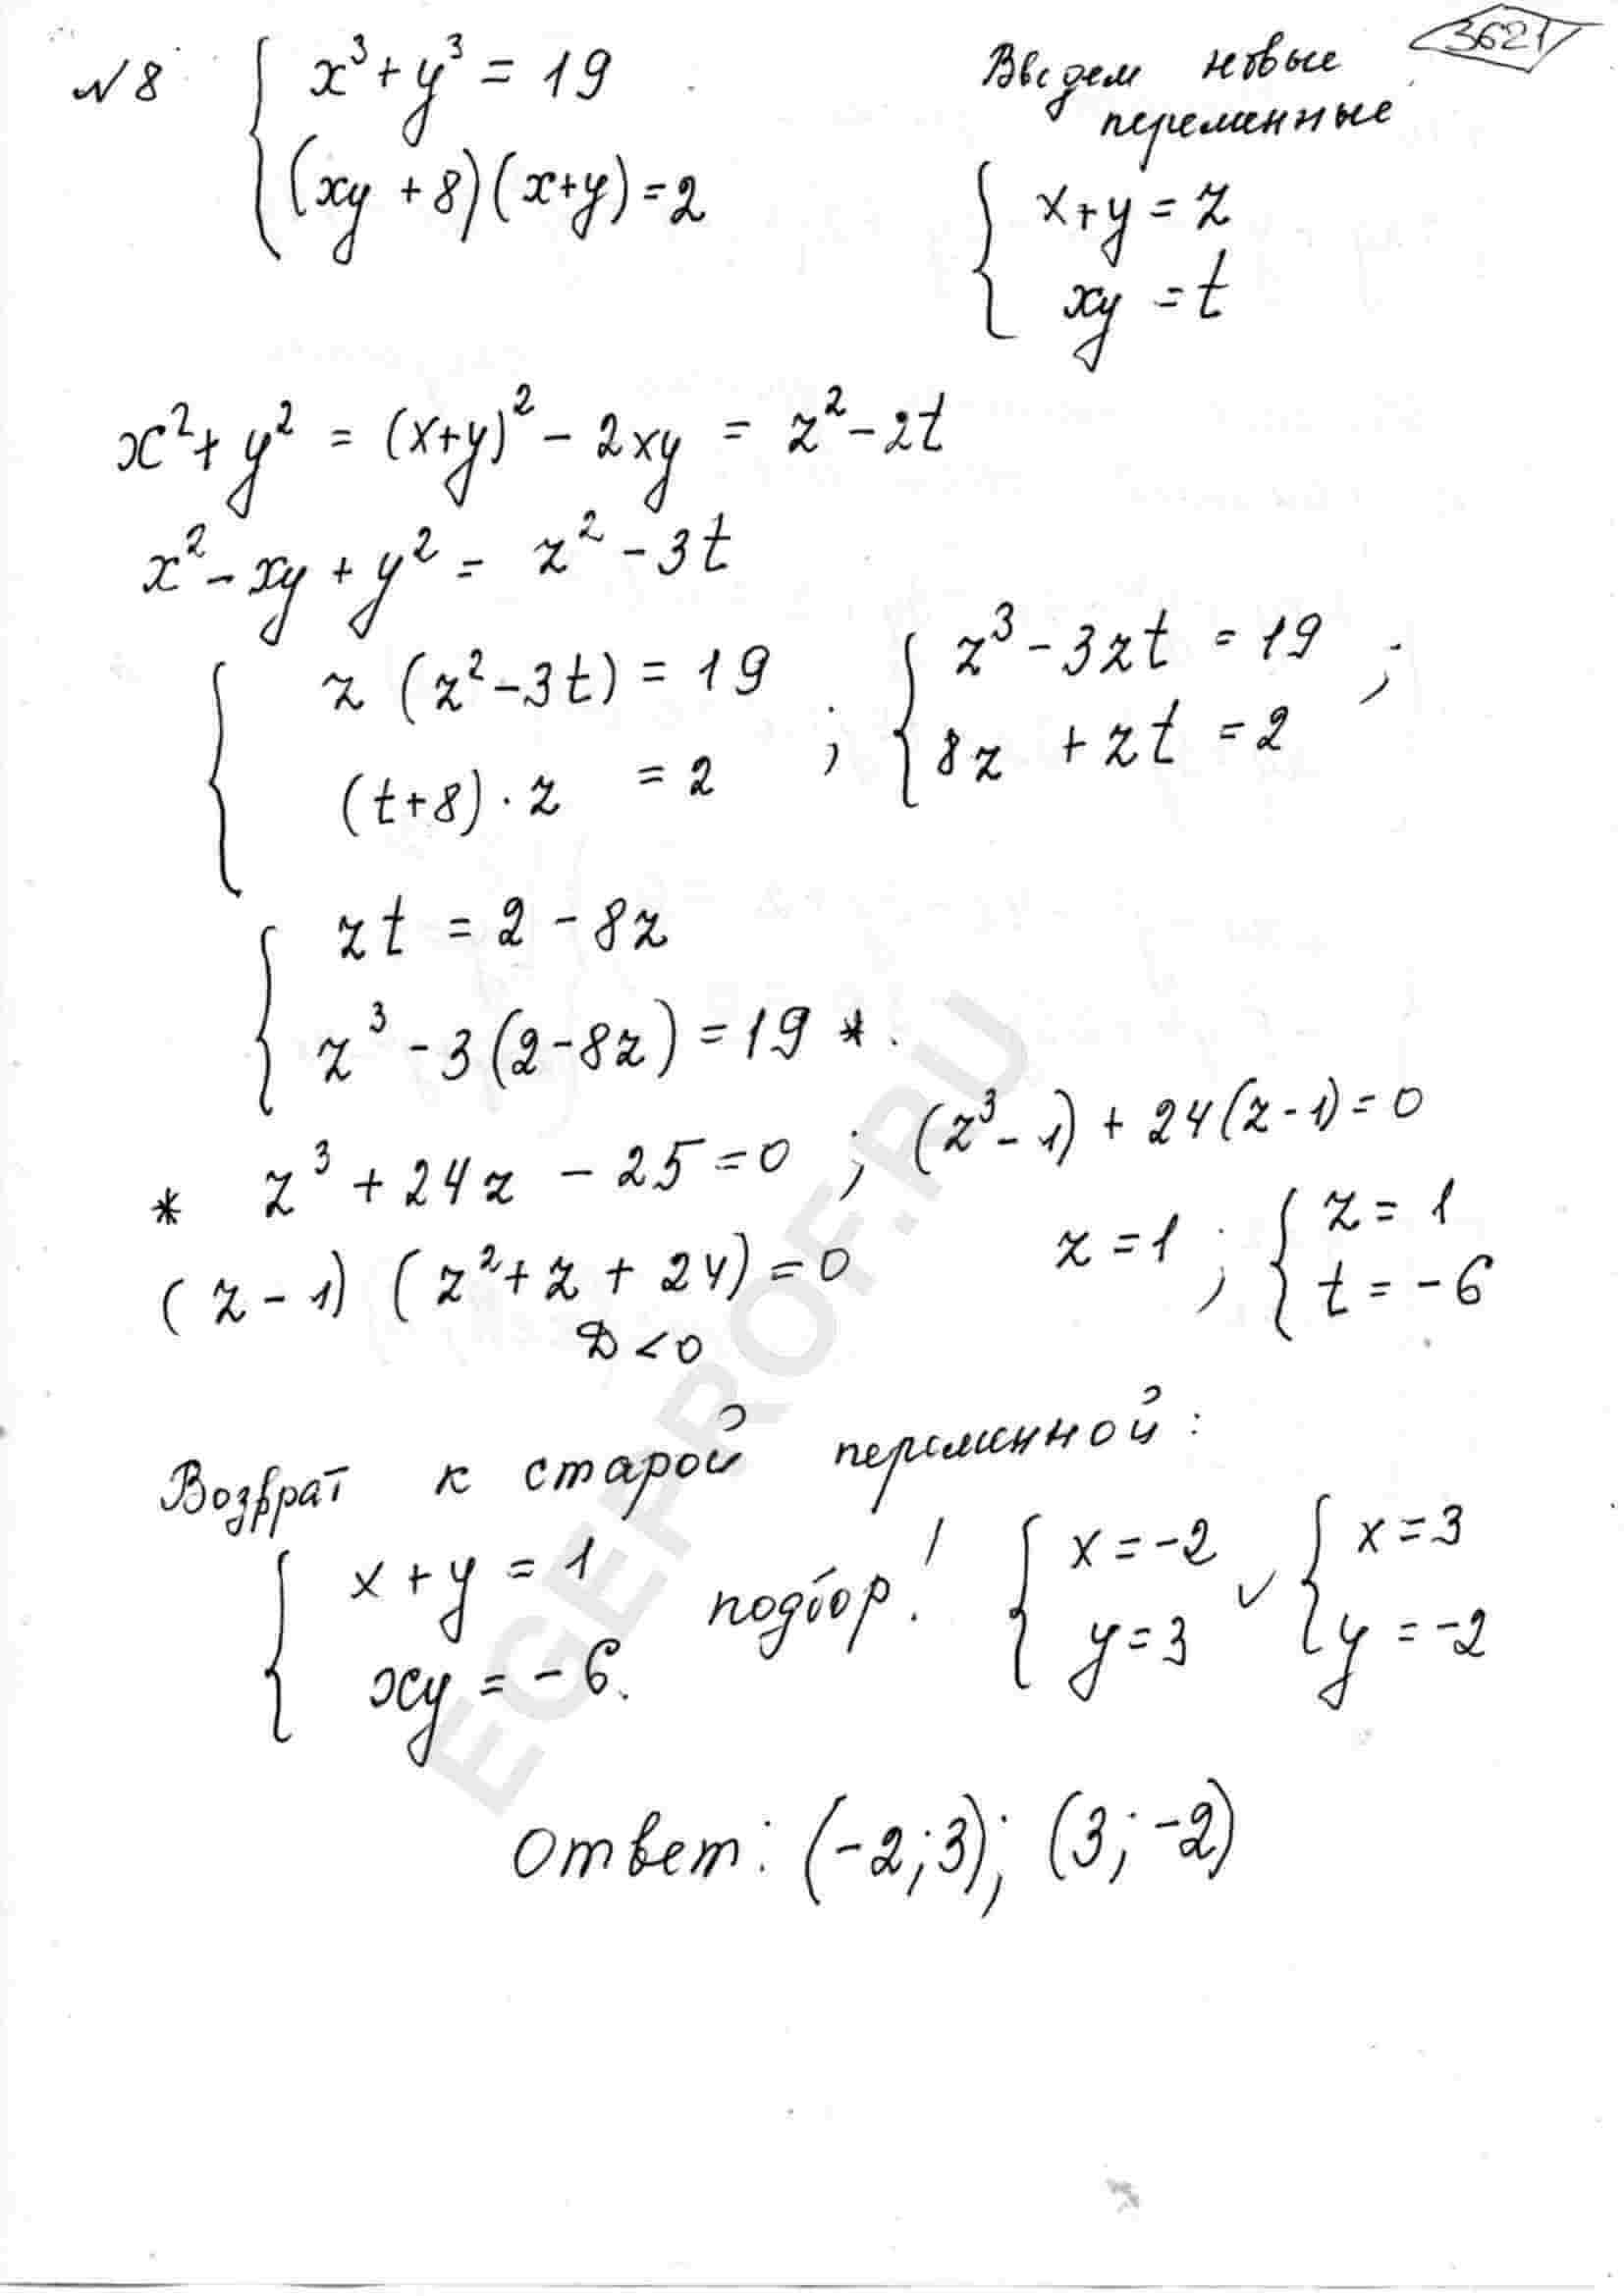 3621
№8 { x³ + y³ = 19
(xy + 8)(x+y) = 2
Введем новые
переменные
{ x+y = z
xy = t
x² + y² = (x+y)² - 2xy = z² - 2t
x² - xy + y² = z² - 3t
{ z (z² - 3t) = 19
(t+8) · z = 2 ;
{ z³ - 3zt = 19 ;
8z + zt = 2
{ zt = 2 - 8z
z³ - 3(2 - 8z) = 19 *.
* z³ + 24z - 25 = 0 ; (z³ - 1) + 24(z - 1) = 0
(z - 1) (z² + z + 24) = 0
D < 0
z = 1 ; { z = 1
t = -6
Возврат к старой переменной:
{ x + y = 1
xy = -6.
подбор! { x = -2
y = 3
∨ { x = 3
y = -2
Ответ: (-2; 3); (3; -2)
EGEPROF.RU